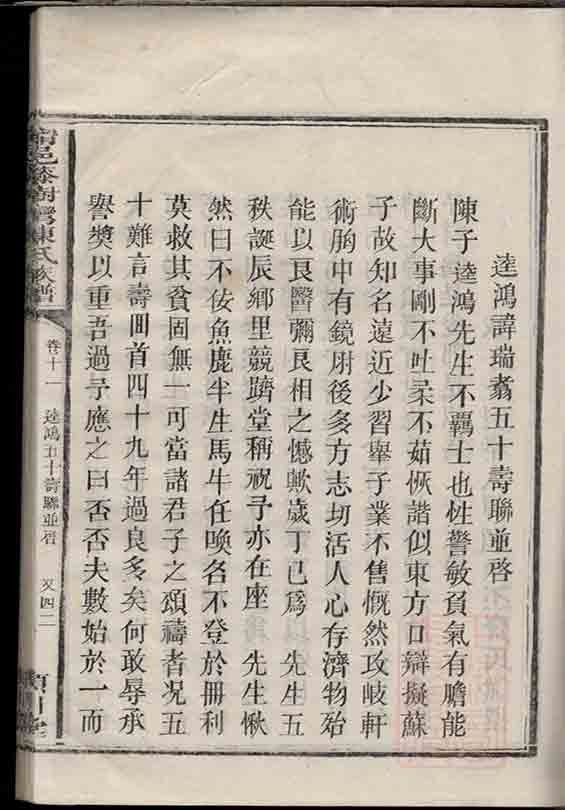 逵鴻諱瑞翥五十壽聯並啓
陳子逵鴻先生不羈士也性警敏負氣有膽能
斷大事剛不吐柔不茹恢諧似東方口辯擬蘇
子故知名遠近少習舉子業不售慨然攻岐軒
術胸中有鏡肘後多方志切活人心存濟物殆
能以良醫彌良相之憾歟歲丁巳為　先生五
秩誕辰鄉里競躋堂稱祝予亦在座　先生愀
然曰不佞魚鹿半生馬牛任喚名不登於冊利
莫救其貧固無一可當諸君子之頌禱者況五
十難言壽回首四十九年過良多矣何敢辱承
譽獎以重吾過予應之曰否否夫數始於一而
邑漆樹灣陳氏族譜
卷十一　逵鴻五十壽聯並啓　又四二
潁川堂